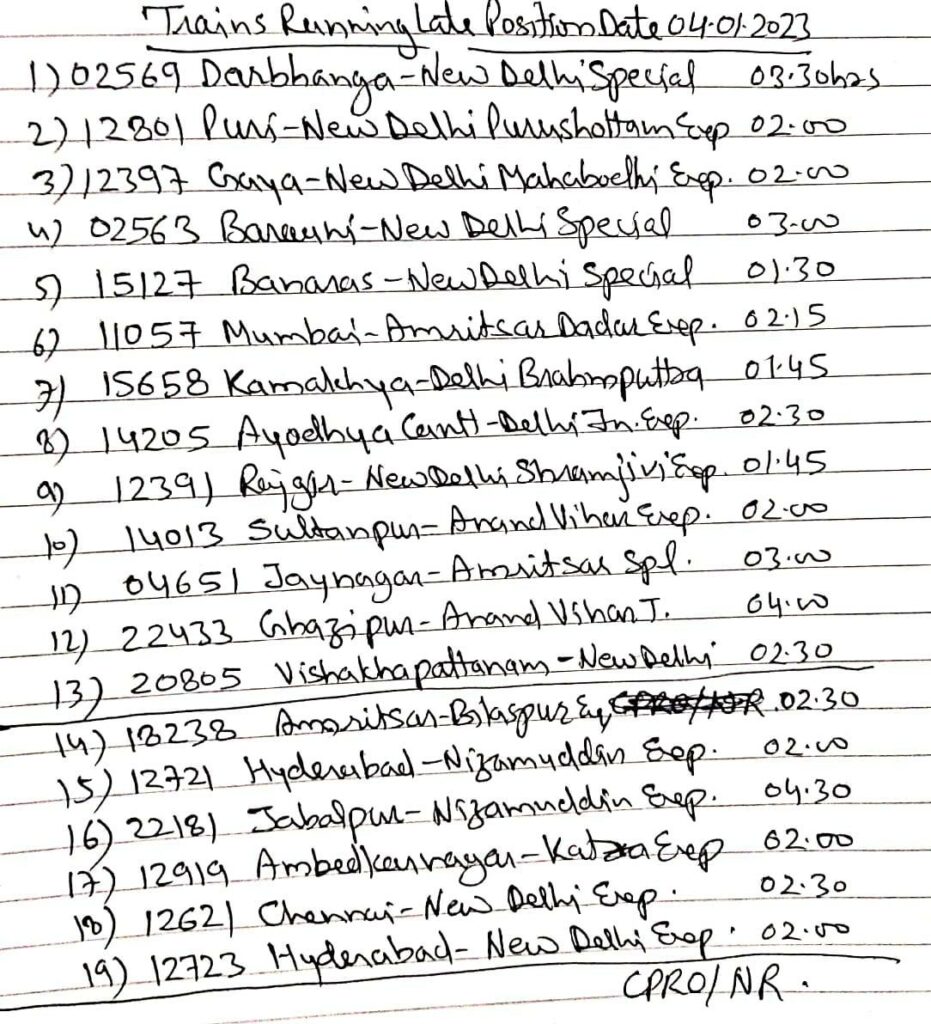 Trains Running Late Position Date 04.01.2023
1) 02569 Darbhanga-New Delhi Special 03.30hrs
2) 12801 Puri-New Delhi Purushottam Exp 02.00
3) 12397 Gaya-New Delhi Mahabodhi Exp. 02.00
4) 02563 Barauni-New Delhi Special 03.00
5) 15127 Banaras-New Delhi Special 01.30
6) 11057 Mumbai-Amritsar Dadar Exp. 02.15
7) 15658 Kamakhya-Delhi Brahmputra 01.45
8) 14205 Ayodhya Cantt-Delhi Jn. Exp. 02.30
9) 12391 Rajgir-New Delhi Shramjivi Exp. 01.45
10) 14013 Sultanpur-Anand Vihar Exp. 02.00
11) 04651 Jaynagar-Amritsar Spl. 03.00
12) 22433 Ghazipur-Anand Vihar T. 04.00
13) 20805 Vishakhapattanam-New Delhi 02.30
14) 18238 Amritsar-Bilaspur Ex, CPRO/NR. 02.30
15) 12721 Hyderabad-Nizamuddin Exp. 02.00
16) 22181 Jabalpur-Nizamuddin Exp. 04.30
17) 12919 Ambedkarnagar-Katra Exp 02.00
18) 12621 Chennai-New Delhi Exp. 02.30
19) 12723 Hyderabad-New Delhi Exp. 02.00
CPRO/NR.